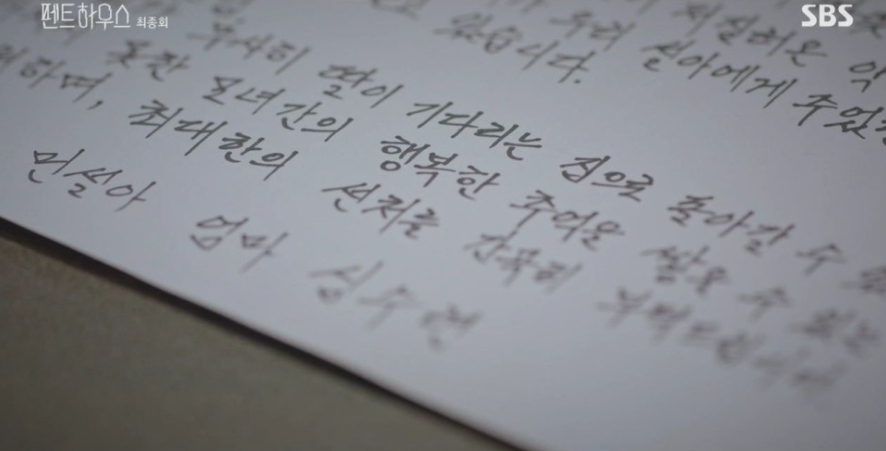 펜트하우스 최종회
SBS
지 저질러온 악
우리 설아에게 주었
있습니다.
무사히 딸이 기다리는 집으로 돌아갈 수
못한 모녀간의 행복한 추억을 쌓을 수 있는
하며, 최대한의 선처를 간곡히 부탁드립니다.
민설아 엄마 심수련